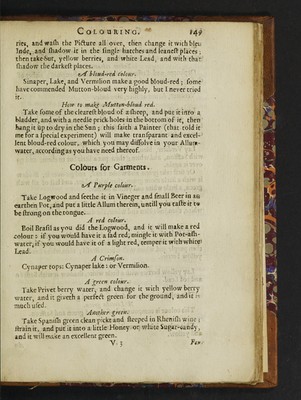 COLOURING. 149
ries, and wash the Picture all over, then change it with bleu
Inde, and shadow it in the single hatches and leanest places;
then take Sut, yellow berries, and white Lead, and with that
shadow the darkest places.
A blood-red colour.
Sinaper, Lake, and Vermilion make a good bloud-red; some
have commended Mutton-bloud very highly, but I never tried
it.
How to make Mutton-bloud red.
Take some of the clearest blood of a sheep, and put it into a
bladder, and with a needle prick holes in the bottom of it, then
hang it up to dry in the Sun; this saith a Painter (that told it
me for a special experiment) will make transparant and excel-
lent bloud-red colour, which you may dissolve in your Allum-
water, according as you have need thereof.
Colours for Garments.
A Purple colour.
Take Logwood and seethe it in Vineger and small Beer in an
earthen Pot, and put a little Allum therein, untill you taste it to
be strong on the tongue.
A red colour.
Boil Brasil as you did the Logwood, and it will make a red
colour: if you would have it a sad red, mingle it with Pot-ash-
water, if you would have it of a light red, temper it with white
Lead.
A Crimson.
Cynaper tops: Cynaper lake: or Vermilion.
A green colour.
Take Privet berry water, and change it with yellow berry
water, and it giveth a perfect green for the ground, and it is
much used.
Another green.
Take Spanish green clean pickt and steeped in Rhenish wine;
strain it, and put it into a little Honey or white Sugar-candy,
and it will make an excellent green.
V. 3 For